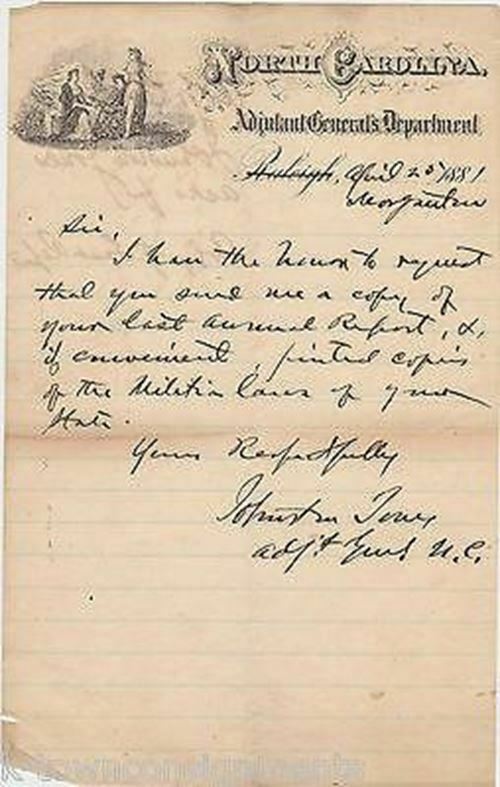 NORTH CAROLINA.
Adjutant General's Department
Raleigh, April 25 1881
Morganton
Sir,
I have the honor to request
that you send me a copy of
your last annual Report, &,
if convenient, printed copies
of the Militia laws of your
State.
Yours Respectfully
Johnston Jones
Adj't Genl N.C.
k-townconsignments